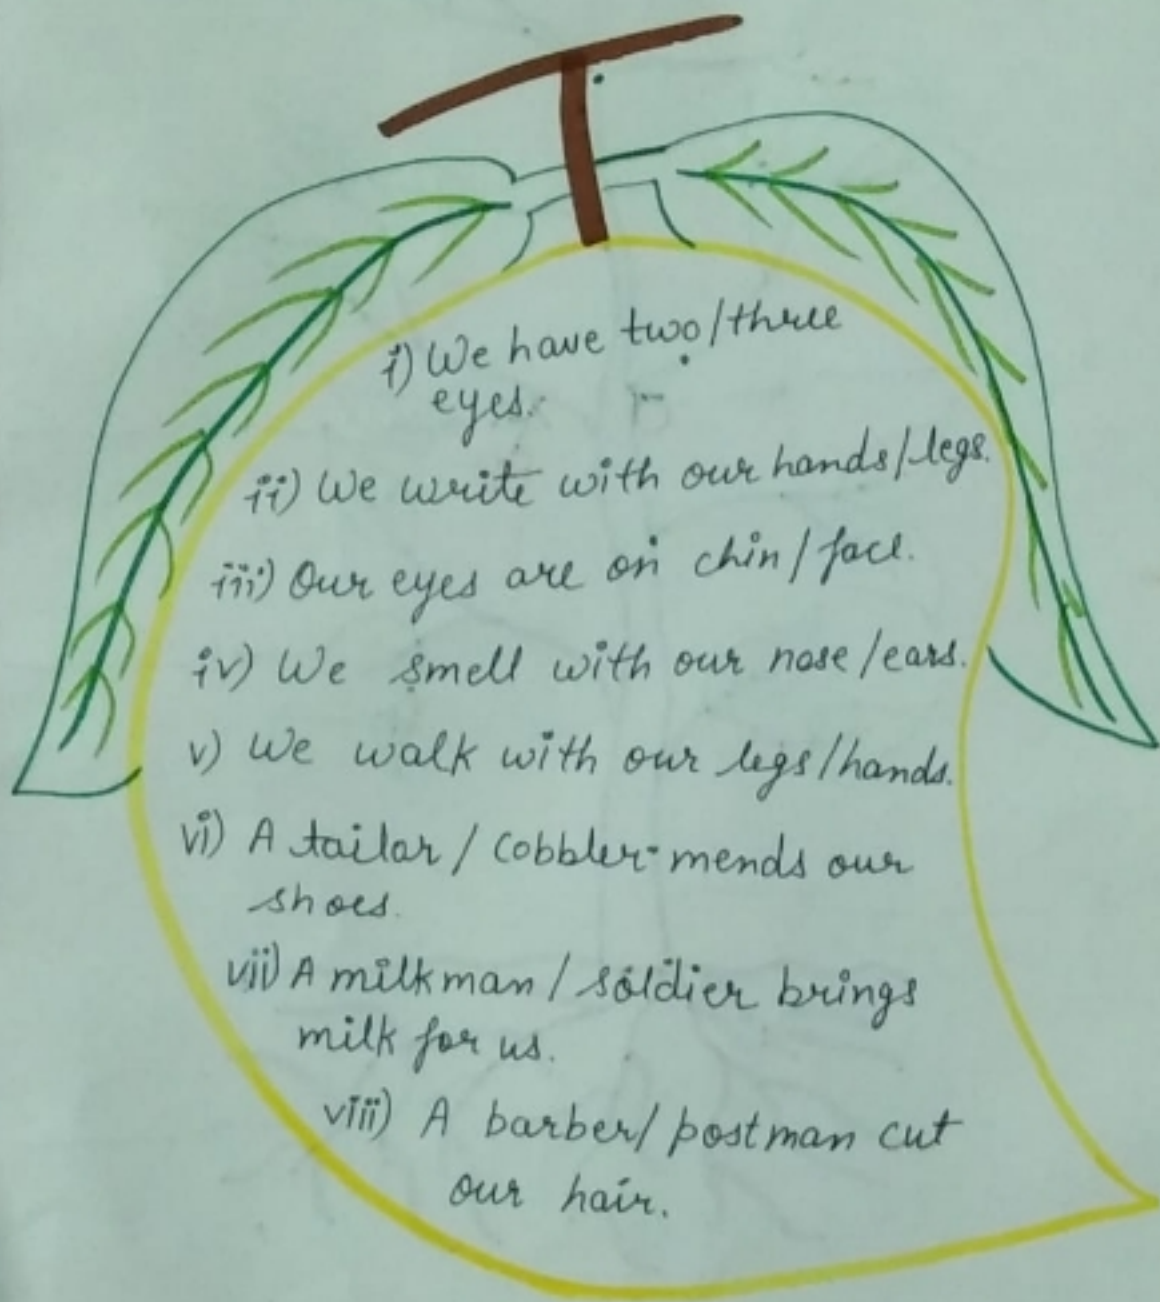 i) We have two/three
eyes.
ii) We write with our hands/legs.
iii) Our eyes are on chin/face.
iv) We smell with our nose/ears.
v) We walk with our legs/hands.
vi) A tailar / cobbler mends our
shoes.
vii) A milkman / soldier brings
milk for us.
viii) A barber/ postman cut
our hair.